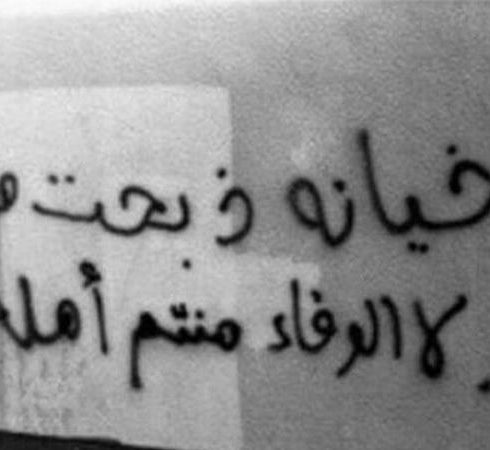 خيانه ذبحت
لا الوفاء منتم أهله